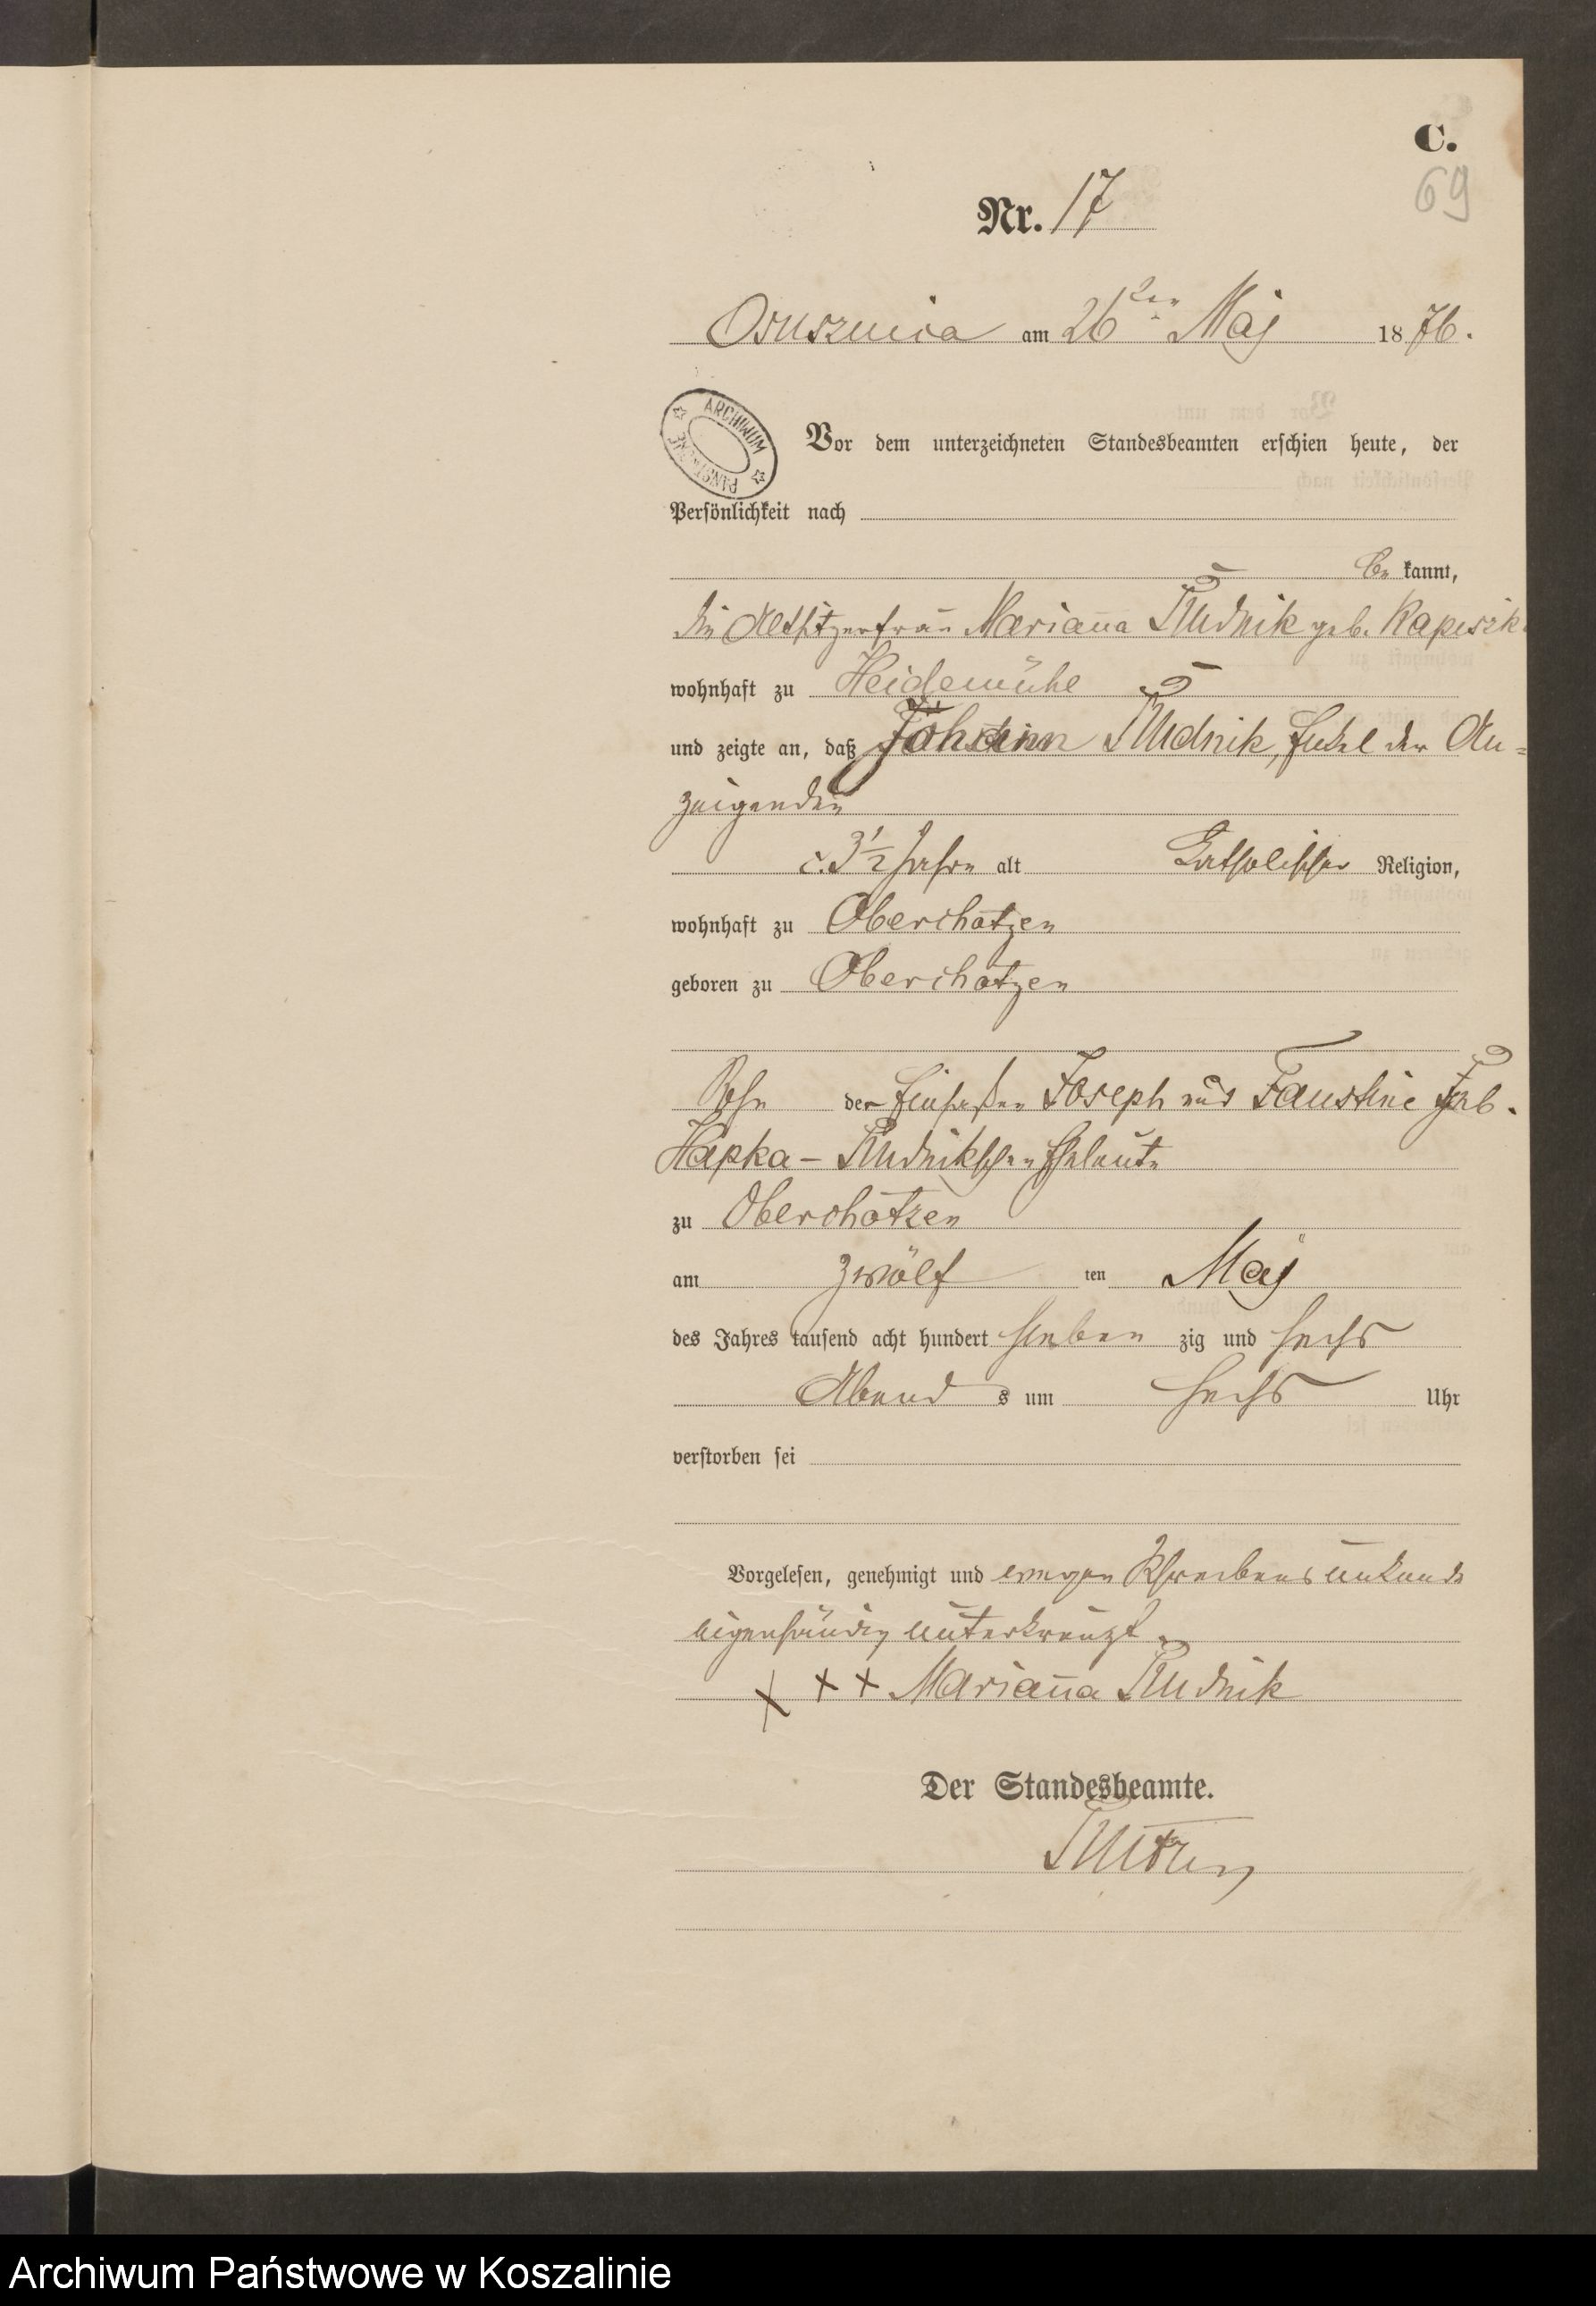 C.
69
Nr. 17
Osusznica am 26ten Maj 1876.
ARCHIWUM PAŃSTWOWE
Vor dem unterzeichneten Standesbeamten erschien heute, der
Persönlichkeit nach
be kannt,
die Altsitzerfrau Marianna Rudnik geb.
wohnhaft zu Heidemühe
und zeigte an, daß Johann Rudnik, Enkel der An-
zeigenden
c. 3 1/2 Jahre alt Katholischer Religion,
wohnhaft zu Oberchotzen
geboren zu Oberchotzen
Sohn der Einsaßen Joseph und Faustine geb.
Hapka - Rudnikschen Eheleute
zu Oberchotzen
am zwölf ten Maj
des Jahres tausend acht hundert sieben zig und sechs
Abend s um sechs Uhr
verstorben sei
Vorgelesen, genehmigt und wegen Schreibensunkunde
eigenhändig unterkreuzt.
+ + + Marianna Rudnik
Der Standesbeamte.
Archiwum Państwowe w Koszalinie